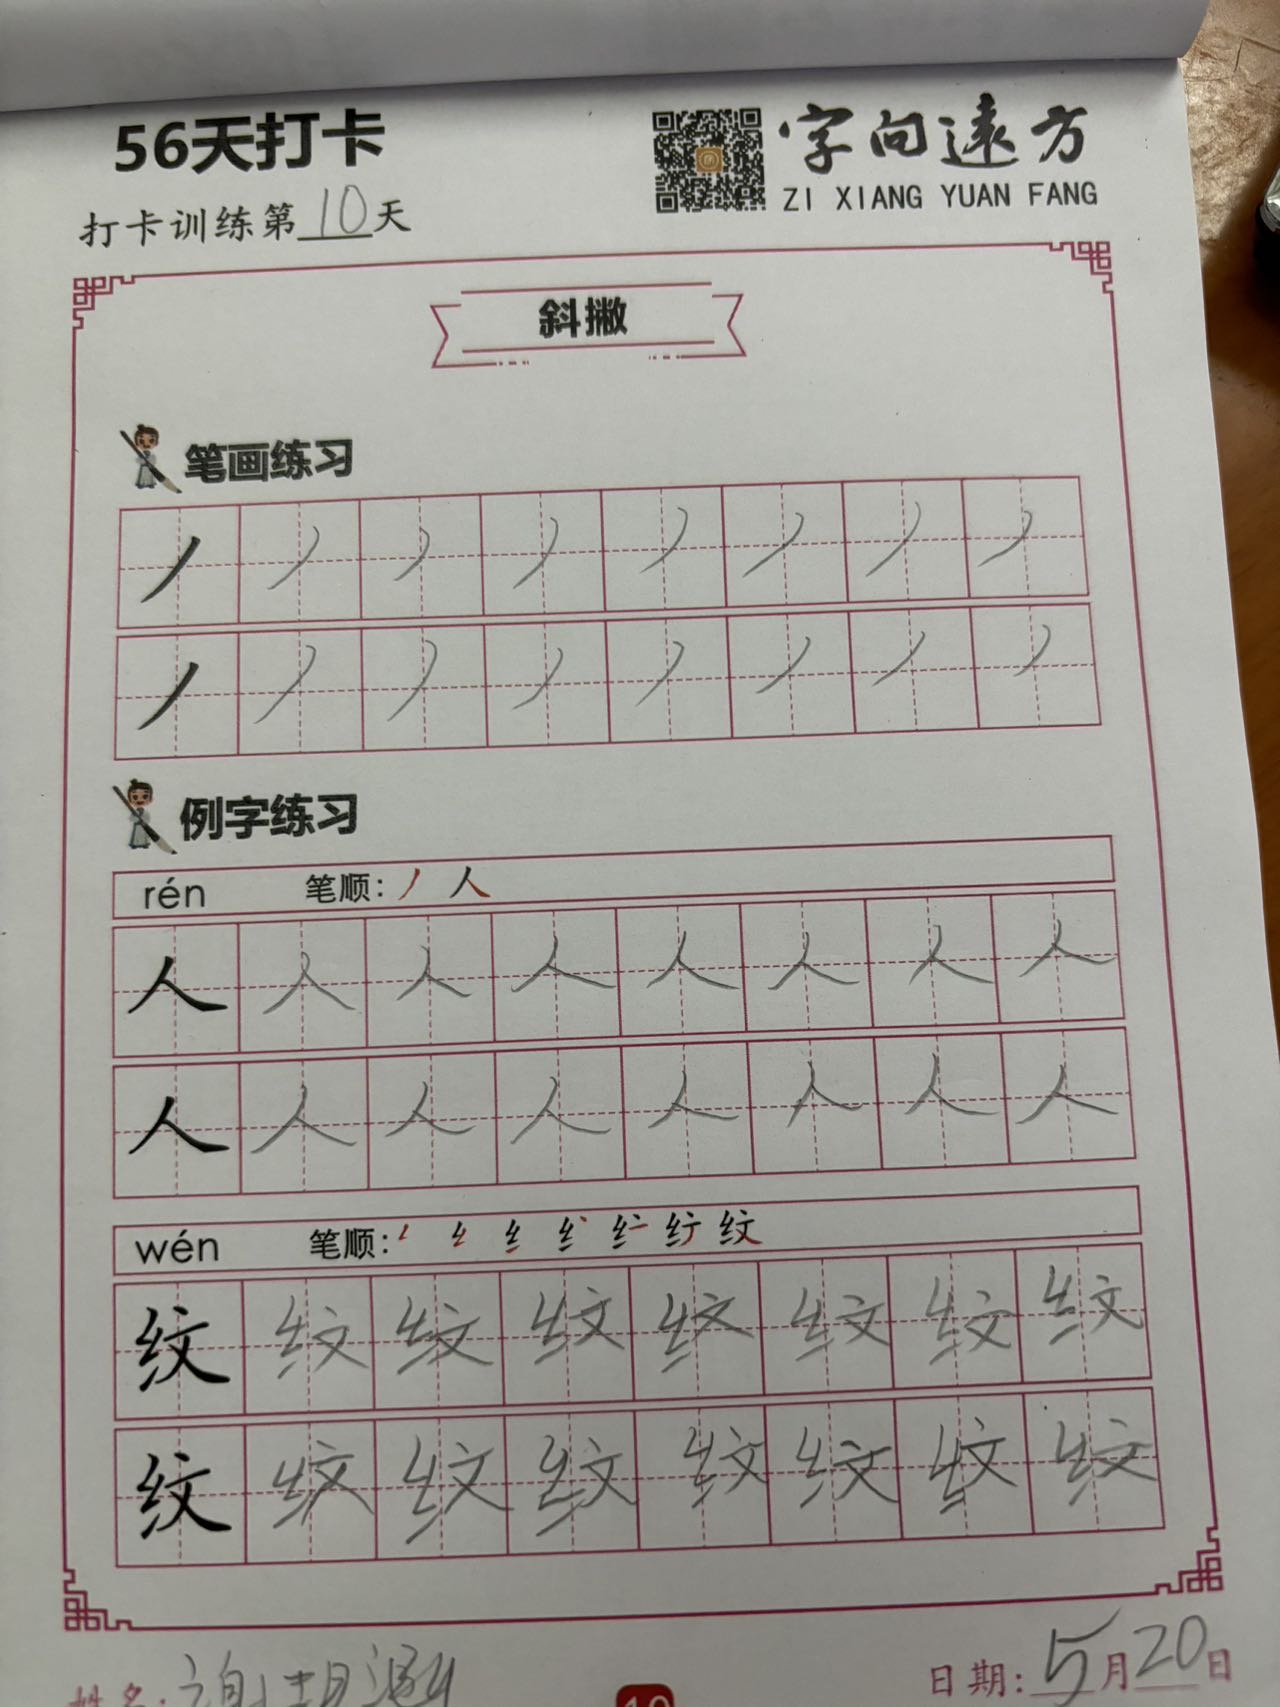 56天打卡
字向远方
ZI XIANG YUAN FANG
打卡训练第10天
斜撇
笔画练习
丿丿丿丿丿丿丿丿
丿丿丿丿丿丿丿丿
例字练习
rén 笔顺: 丿 人
人人人人人人人人
人人人人人人人人
wén 笔顺: 纹
纹纹纹纹纹纹纹纹
纹纹纹纹纹纹纹纹
姓名: 谢
日期: 5月20日
10